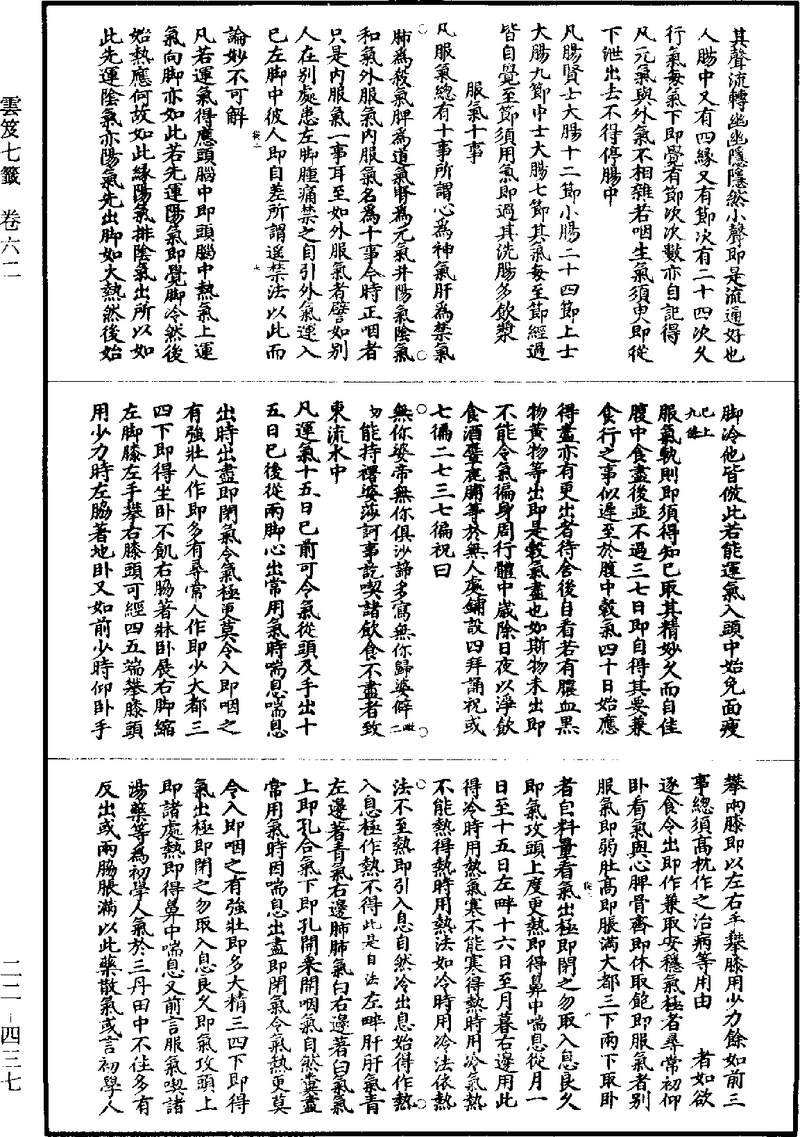 雲笈七籤 卷六二
二二-四三七
其聲流轉幽幽隱隱然小聲即是流通好也
人腸中又有四緣又有節次有二十四次久
行氣每氣下即覺有節次次數亦自記得
凡元氣與外氣不相雜若咽生氣須臾即從
下泄出去不得停腸中
凡腸賢士大腸十二節小腸二十四節上士
大腸九節中士大腸七節其氣每至節經過
皆自覺至節須用氣即過其洗腸多飲漿
服氣十事
凡服氣總有十事所謂心為神氣肝為禁氣
肺為殺氣脾為道氣腎為元氣并陽氣陰氣
和氣外服氣內服氣名為十事今時正咽者
只是內服氣一事耳至如外服氣者譬如別
人在別處患左脚腫痛禁之自引外氣運入
已左脚中彼人即自差所謂遥禁法以此而
論妙不可解
凡若運氣得應頭腦中即頭腦中熱氣上運
氣向脚亦如此若先運陽氣即覺脚冷然後
始熱應何故如此緣陽氣排陰氣出所以如
此先運陰氣亦陽氣先出脚如火熱然後始
脚冷他皆倣此若能運氣入頭中始免面瘦
已上九條
服氣軌則即須得知已取其精妙久而自佳
腹中食盡後並不過三七日即自得其要兼
食行之事似遲至於腹中穀氣四十日始應
得盡亦有更出者待舍後自看若有膿血黑
物黃物等出即是穀氣盡也如斯物未出即
不能令氣徧身周行體中歲除日夜以淨飲
食酒麞鹿脯等於無人處鋪設四拜誦祝或
七徧二七三七徧祝曰
無你婆帝無你俱沙諦多寫無你歸婆僻
能持禪婆莎訶事訖喫諸飲食不盡者致
東流水中
凡運氣十五日已前可令氣從頭及手出十
五日已後從兩脚心出常用氣時喘息喘息
出時出盡即閉氣令氣極更莫令入即咽之
有強壯人作即多有尋常人作即少大都三
四下即得坐卧不飢右脇著牀卧展右脚縮
左脚膝左手攀右膝頭可經四五端攀膝頭
用少力時左脇著地卧又如前少時仰卧手
攀兩膝即以左右手攀膝用少力餘如前三
事總須高枕作之治病等用由 者如欲
逐食令出即作兼取安穩氣極者尋常初仰
卧看氣與心脾骨齊即休取飽即服氣者別
服氣即弱肚高即脹滿大都三下兩下取卧
者自料量看氣出極即閉之勿取入息良久
即氣攻頭上度更熱即得鼻中喘息從月一
日至十五日左畔十六日至月暮右邊用此
得冷時用熱氣寒不能寒得熱時用冷氣熱
不能熱得熱時用熱法如冷時用冷法依熱
法不至熱即引入息自然冷出息始得作熱
入息極作熱不得此是自法左畔肝肝氣青
左邊著青氣右邊肺肺氣白右邊著白氣氣
上即孔合氣下即孔開果開咽氣自然糞盡
常用氣時因喘息出盡即閉氣令氣熱更莫
令入即咽之有強壯即多大精三四下即得
氣出極即閉之勿取入息良久即氣攻頭上
即諸處熱即得鼻中喘息又前言服氣喫諸
湯藥等為初學人氣於三丹田中不住多有
反出或兩脇脹滿以此藥散氣或言初學人